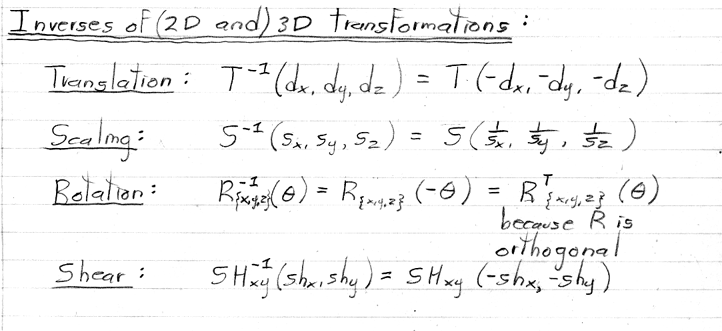 Inverses of (2D and) 3D transformations :
Translation : T⁻¹(dx, dy, dz) = T(-dx, -dy, -dz)
Scaling : S⁻¹(sx, sy, sz) = S(1/sx, 1/sy, 1/sz)
Rotation : R⁻¹{x,y,z}(θ) = R{x,y,z}(-θ) = Rᵀ{x,y,z}(θ)
because R is
orthogonal
Shear : SH⁻¹xy(shx, shy) = SHxy(-shx, -shy)